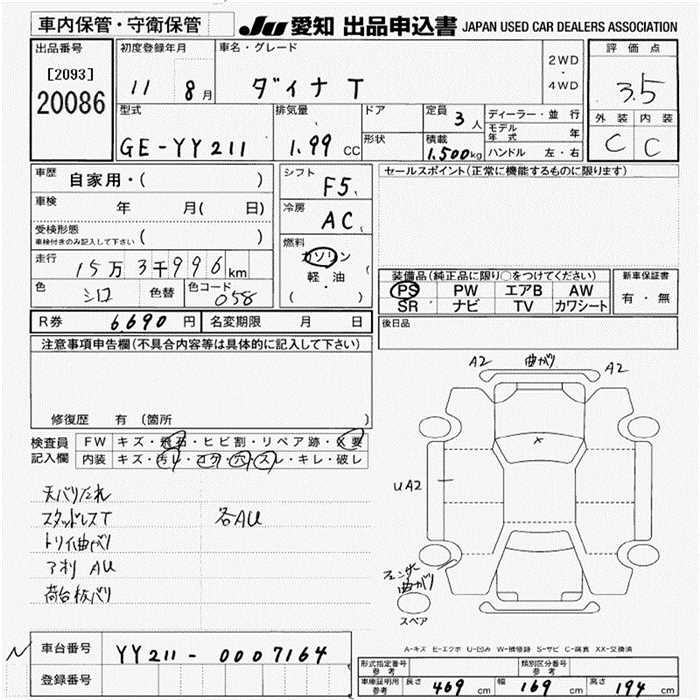 車内保管・守衛保管 JU 愛知 出品申込書 JAPAN USED CAR DEALERS ASSOCIATION
出品番号 初度登録年月 車名・グレード 2WD ・ 4WD 評価点
[2093] 20086 11 8月 ダイナ T 3.5
型式 排気量 ドア 定員 3人 ディーラー・並行 外装 内装
GE-YY211 1.99 CC 形状 積載 1.500kg モデル年式 年 C C
ハンドル 左・右
車歴 自家用・( ) シフト F5 セールスポイント(正常に機能するものに限ります)
車検 年 月( 日) 冷房 AC
受検形態 車検付きのみ記入して下さい ( ) 燃料 ガソリン
走行 15万3千996km 軽・油 装備品(純正品に限り○をつけてください) 新車保証書
色 シロ 色替 色コード 058 ( ) PS PW エアB AW 有・無
SR ナビ TV カワシート
R券 6,690円 名変期限 月 日 後日品
注意事項申告欄(不具合内容等は具体的に記入して下さい)
修復歴 有 (箇所 )
A2 曲がり A2
検査員 FW キズ・飛石・ヒビ割・リペア跡・X要
記入欄 内装 キズ・汚レ・コゲ・穴・スレ・キレ・破レ
X
UA2
天バリたれ
スタッドレスT 各AU
トリイ曲がり
アオリ AU
荷台板バリ
曲がり
スペア
A-キズ E-エクボ U-凹み W-補修跡 S-サビ C-腐食 XX-交換済
車台番号 YY211-0007164
登録番号
形式指定番号 参考 類別区分番号 参考
車庫証明用 参考 長さ 469 cm 幅 169 cm 高さ 194 cm